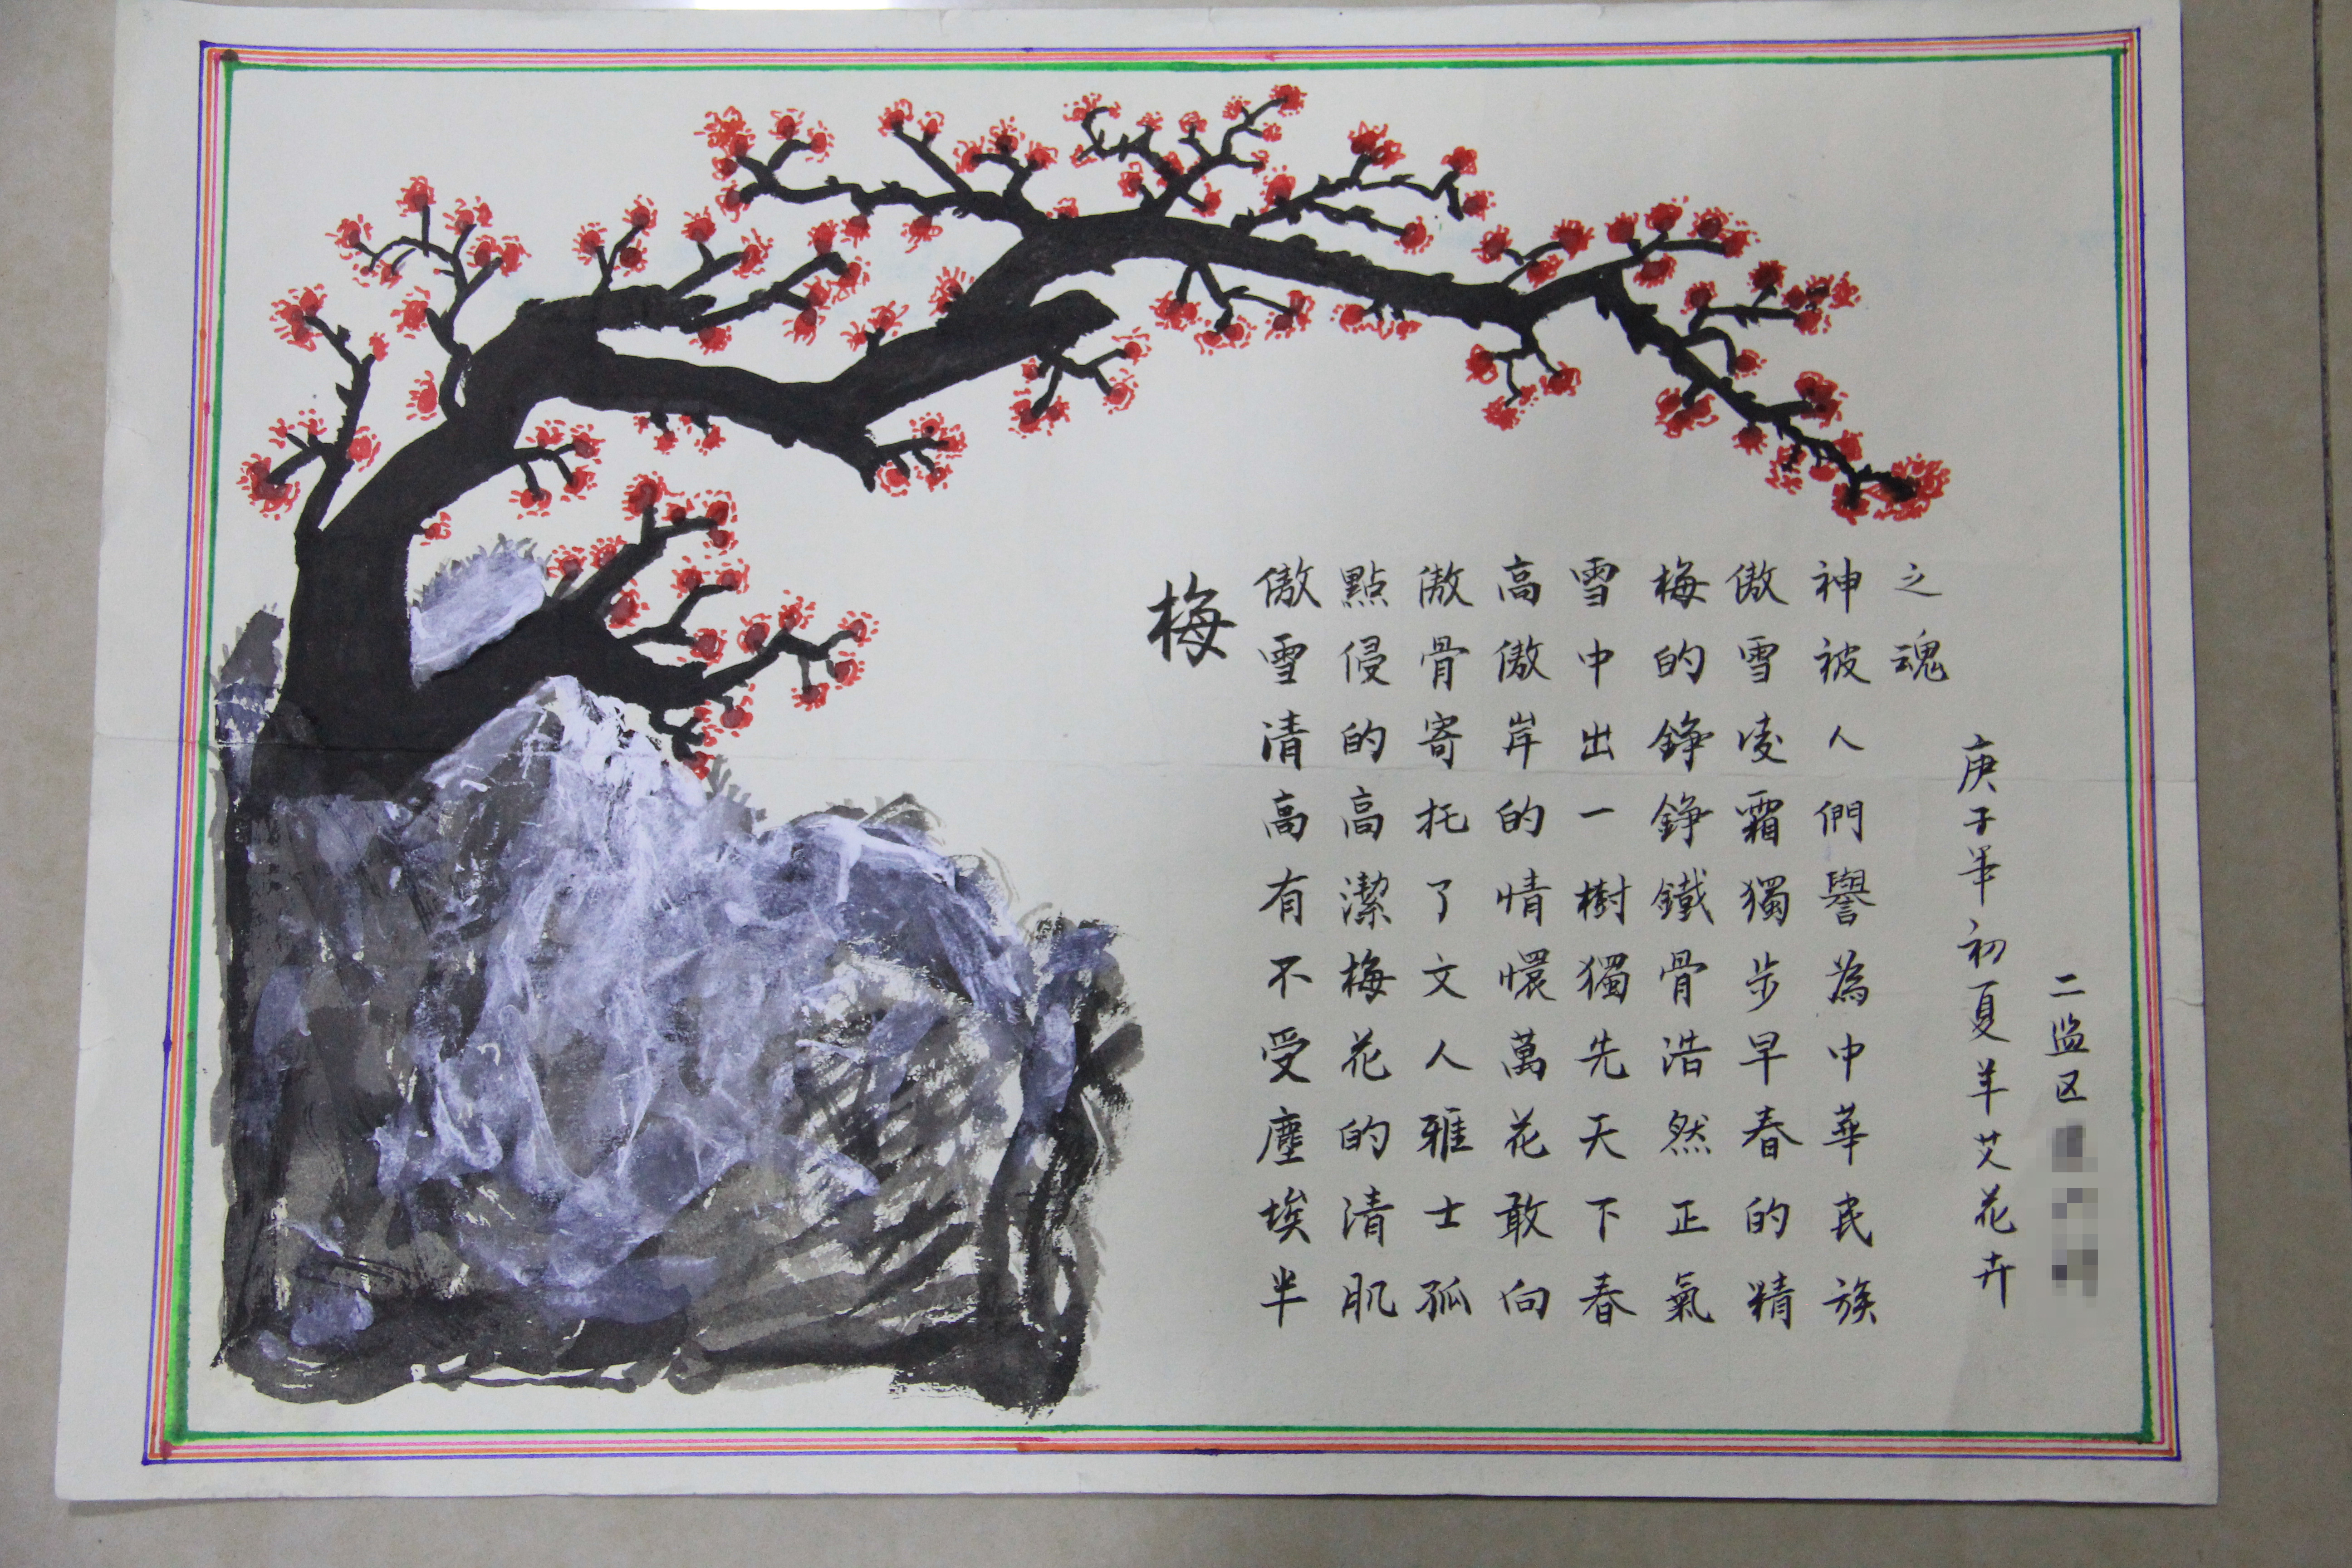 梅
傲雪清高有不受塵埃半
點侵的高潔梅花的清肌
傲骨寄托了文人雅士孤
高傲岸的情懷萬花敢向
雪中出一樹獨先天下春
梅的錚錚鐵骨浩然正氣
傲雪凌霜獨步早春的精
神被人們譽為中華民族
之魂
庚子年初夏羊艾花卉
二监区